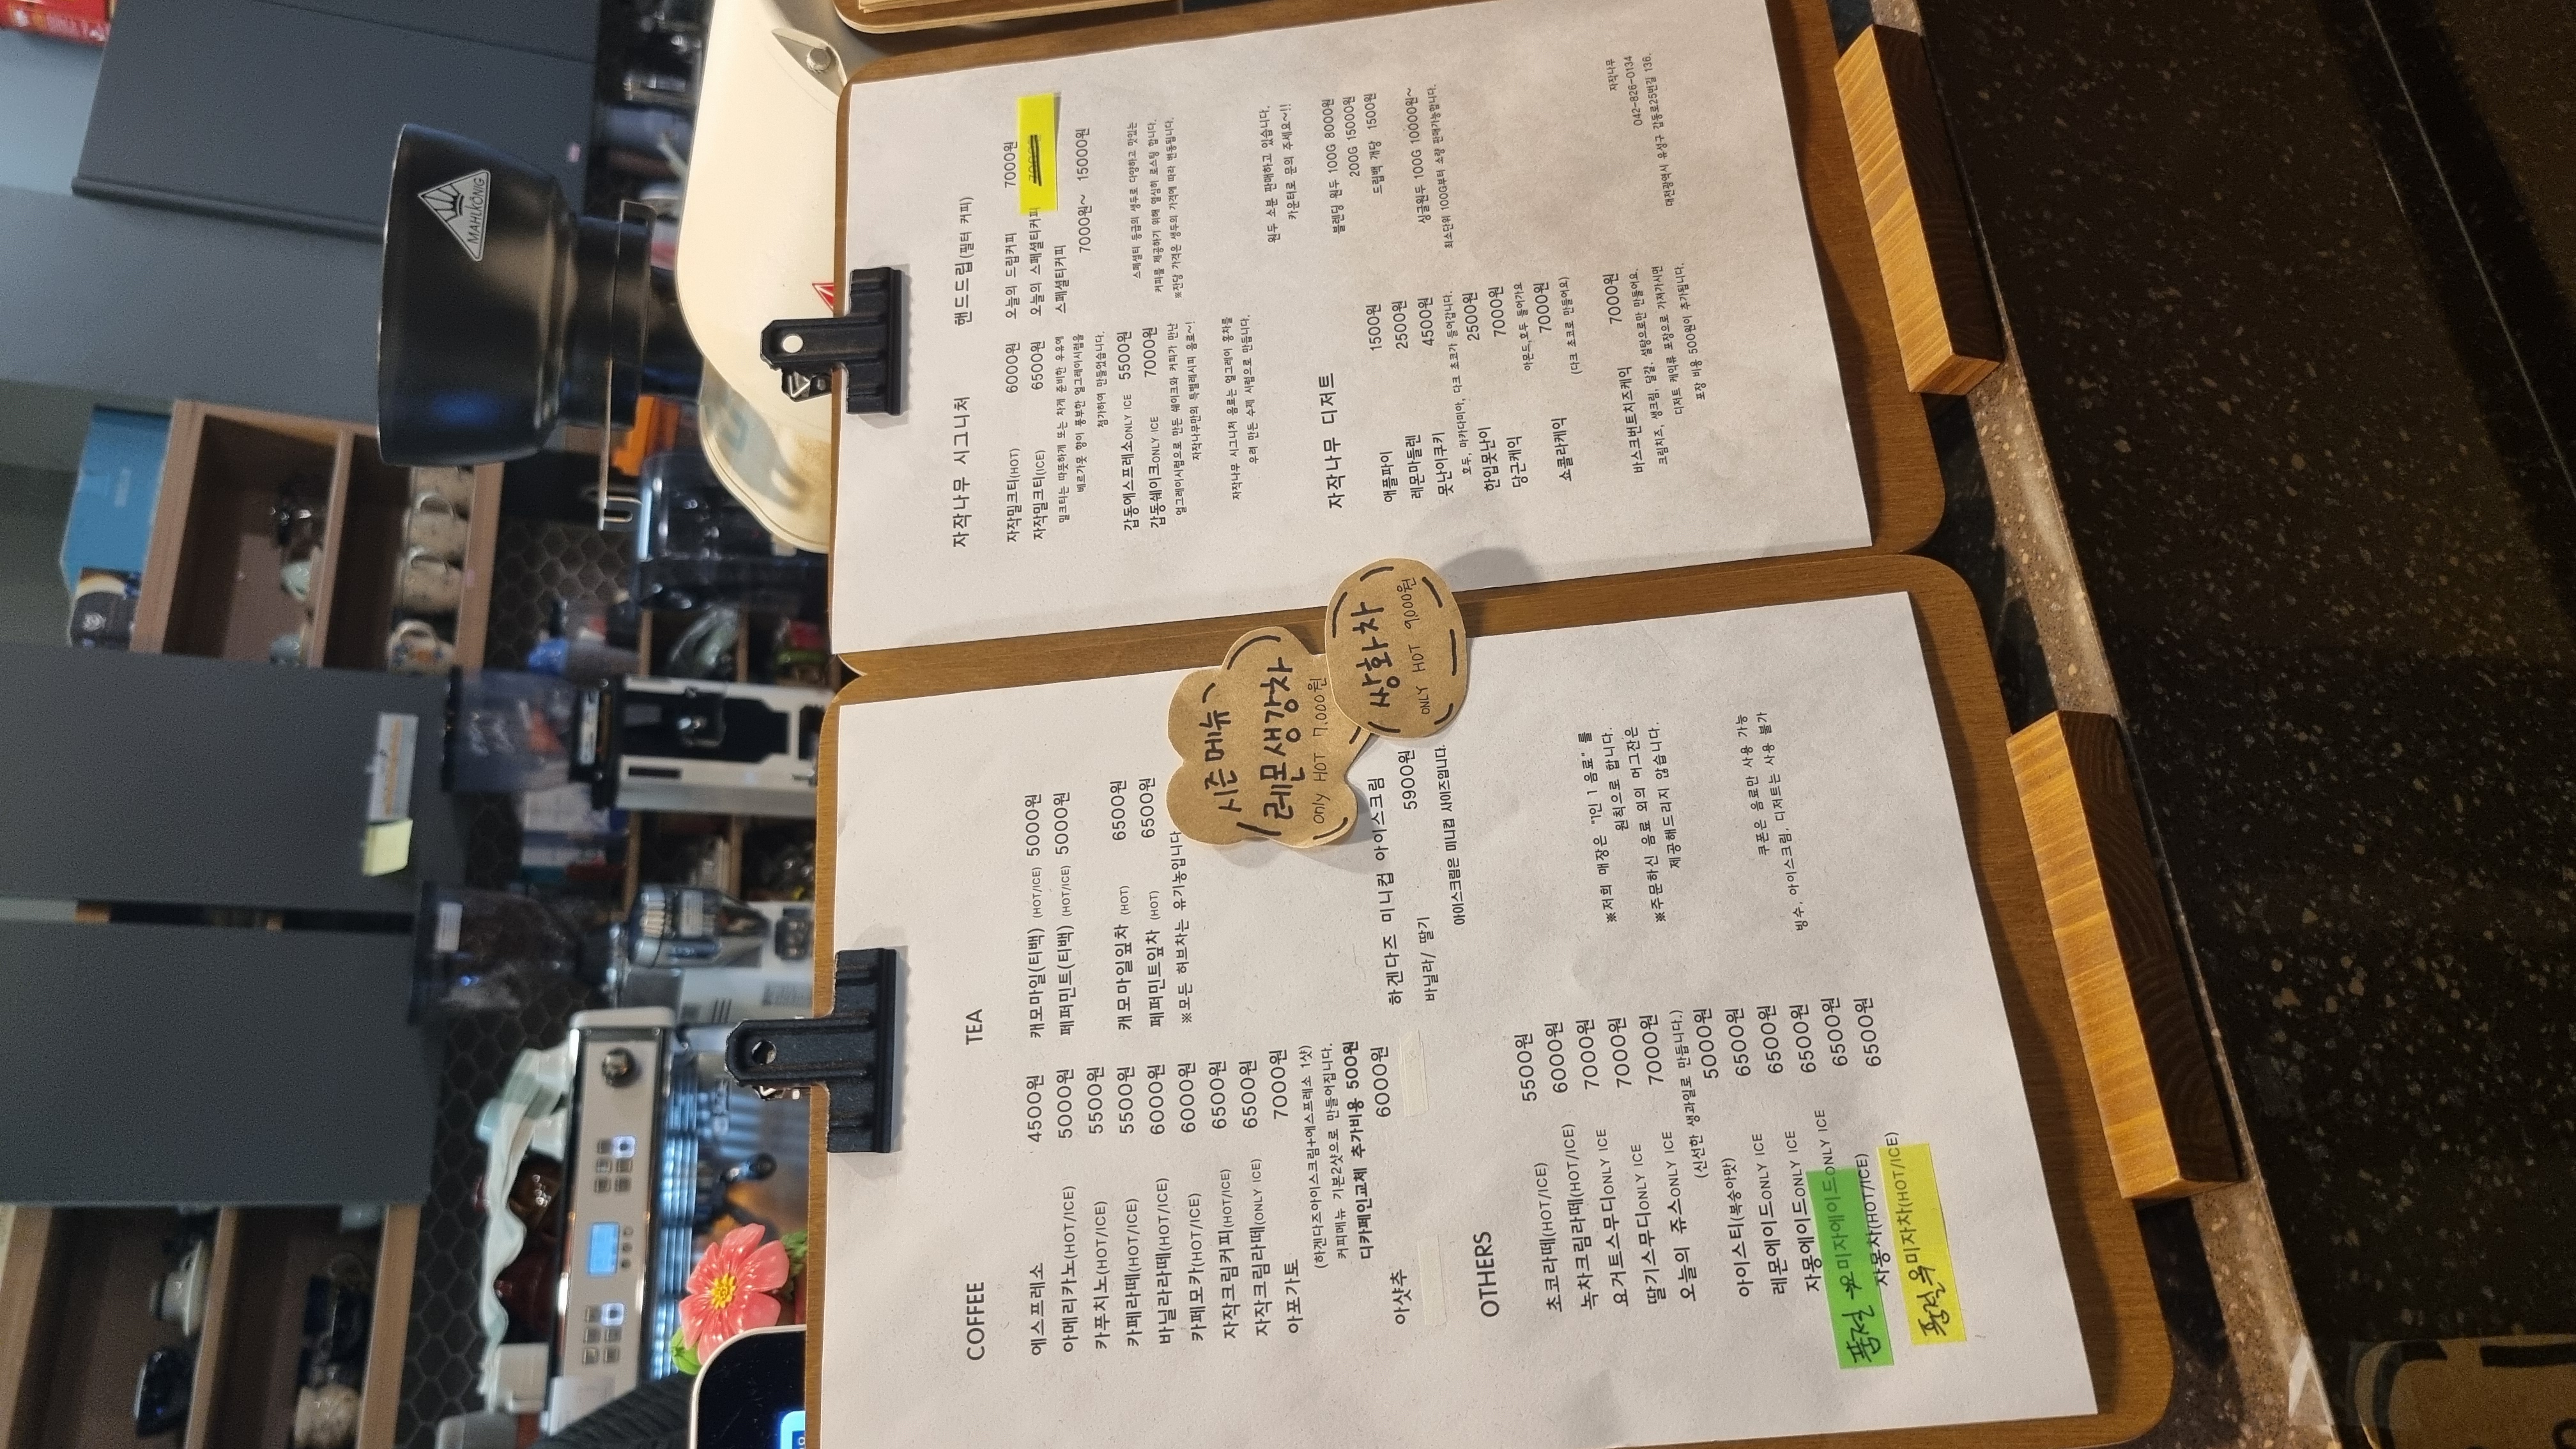 MAHLKÖNIG
COFFEE
에스프레소 4500원
아메리카노(HOT/ICE) 5000원
카푸치노(HOT/ICE) 5500원
카페라떼(HOT/ICE) 5500원
바닐라라떼(HOT/ICE) 6000원
카페모카(HOT/ICE) 6000원
자작크림커피(HOT/ICE) 6500원
자작크림라떼(ONLY ICE) 6500원
아포가토 7000원
(하겐다즈아이스크림+에스프레소 1샷)
커피메뉴 기본2샷으로 만들어집니다.
디카페인교체 추가비용 500원
아샷추 6000원
OTHERS
초코라떼(HOT/ICE) 5500원
녹차크림라떼(HOT/ICE) 6000원
요거트스무디ONLY ICE 7000원
딸기스무디ONLY ICE 7000원
오늘의 쥬스ONLY ICE 7000원
(신선한 생과일로 만듭니다.)
아이스티(복숭아맛) 5000원
레몬에이드ONLY ICE 6500원
자몽에이드ONLY ICE 6500원
품절 오미자에이드ONLY ICE 6500원
자몽차(HOT/ICE) 6500원
품절 오미자차(HOT/ICE) 6500원
TEA
캐모마일(티백) (HOT/ICE) 5000원
페퍼민트(티백) (HOT/ICE) 5000원
캐모마일잎차 (HOT) 6500원
페퍼민트잎차 (HOT) 6500원
※모든 허브차는 유기농입니다
시즌메뉴
레몬생강차
only HOT 7,000원
쌍화차
ONLY HOT 9,000원
하겐다즈 미니컵 아이스크림
바닐라/ 딸기 5900원
아이스크림은 미니컵 사이즈입니다.
※저희 매장은 "1인 1 음료" 를
원칙으로 합니다.
※주문하신 음료 외의 머그잔은
제공해드리지 않습니다.
쿠폰은 음료만 사용 가능
빙수, 아이스크림, 디저트는 사용 불가
자작나무 시그니처
자작밀크티(HOT) 6000원
자작밀크티(ICE) 6500원
밀크티는 따뜻하게 또는 차게 준비한 우유에
베르가못 향이 풍부한 얼그레이시럽을
첨가하여 만들었습니다.
갑동에스프레소ONLY ICE 5500원
갑동쉐이크ONLY ICE 7000원
얼그레이시럽으로 만든 쉐이크와 커피가 만난
자작나무만의 특별레시피 음료~!
자작나무 시그니처 음료는 얼그레이 홍차를
우려 만든 수제 시럽으로 만듭니다.
자작나무 디저트
애플파이 1500원
레몬마들렌 2500원
못난이쿠키 4500원
호두, 마카다미아, 다크 초코가 들어갑니다.
한입못난이 2500원
당근케익 7000원
아몬드,호두 들어가요
쇼콜라케익 7000원
(다크 초코로 만들어요)
바스크번트치즈케익 7000원
크림치즈, 생크림, 달걀, 설탕으로만 만들어요.
디저트 케익류 포장으로 가져가시면
포장 비용 500원이 추가됩니다.
핸드드립(필터 커피)
오늘의 드립커피 7000원
오늘의 스페셜티커피
스페셜티커피
7000원~ 15000원
스페셜티 등급의 생두로 다양하고 맛있는
커피를 제공하기 위해 열심히 로스팅 합니다.
※잔당 가격은 생두의 가격에 따라 변동됩니다.
원두 소분 판매하고 있습니다.
카운터로 문의 주세요~!!
블렌딩 원두 100G 8000원
200G 15000원
드립백 개당 1500원
싱글원두 100G 10000원~
최소단위 100G부터 소량 판매가능합니다.
자작나무
042-826-0134
대전광역시 유성구 갑동로25번길 136.